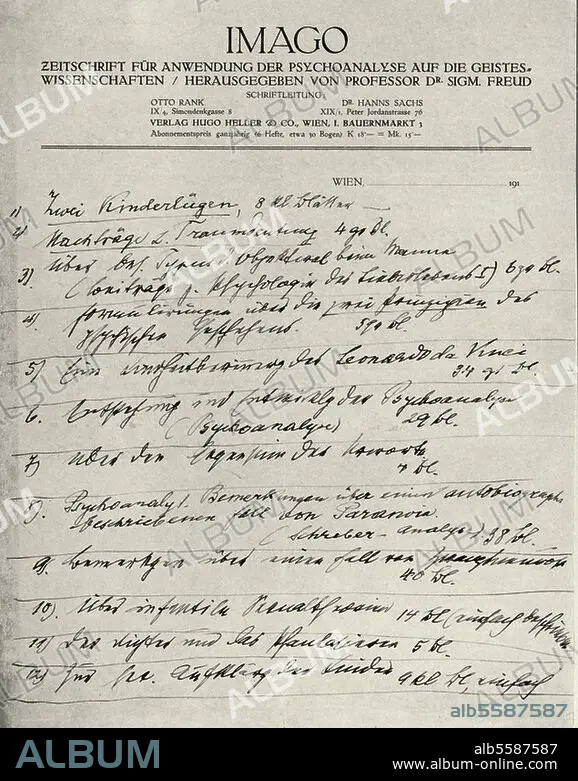 IMAGO
ZEITSCHRIFT FÜR ANWENDUNG DER PSYCHOANALYSE AUF DIE GEISTES-
WISSENSCHAFTEN / HERAUSGEGEBEN VON PROFESSOR DR. SIGM. FREUD
SCHRIFTLEITUNG:
OTTO RANK DR. HANNS SACHS
IX/4, Simondenkgasse 8 XIX/1, Peter Jordanstrasse 76
VERLAG HUGO HELLER & CO., WIEN, I. BAUERNMARKT 3
Abonnementspreis ganzjährig (6 Hefte, etwa 30 Bogen) K 18·— = Mk. 15·—
WIEN, 191
1) Zwei Kinderlügen, 8 kl Blätter —
2) Nachträge z. Traumdeutung 4 gr Bl.
3) Über bes. Typus d. Objektwahl beim Manne
(Beiträge z. Psychologie des Liebeslebens I) 6 gr Bl.
4. Formulierungen über die zwei Prinzipien des
psychischen Geschehens. 5 gr Bl.
5) Eine Kindheitserinnerung des Leonardo da Vinci
34 gr Bl.
6. Entstehung und Entwicklg der Psychoanalyse
(Psychoanalyse) 29 Bl.
7) Über den Gegensinn der Urworte
7 Bl.
8). Psychoanalyt. Bemerkungen über einen autobiograph
beschriebenen Fall von Paranoia
(Schreber-Analyse), 38 Bl.
9) Bemerkgen über einen Fall von
40 Bl.
10) Über infantile Sexualtheorien 14 Bl (einfach beschrieben
11) Der Dichter und das Phantasieren 5 Bl.
12) Zur sex. Aufklärg der Kinder 9 kl Bl, einfach
ALBUM
alb5587587
ALBUM
alb5587587
www.album-online.com